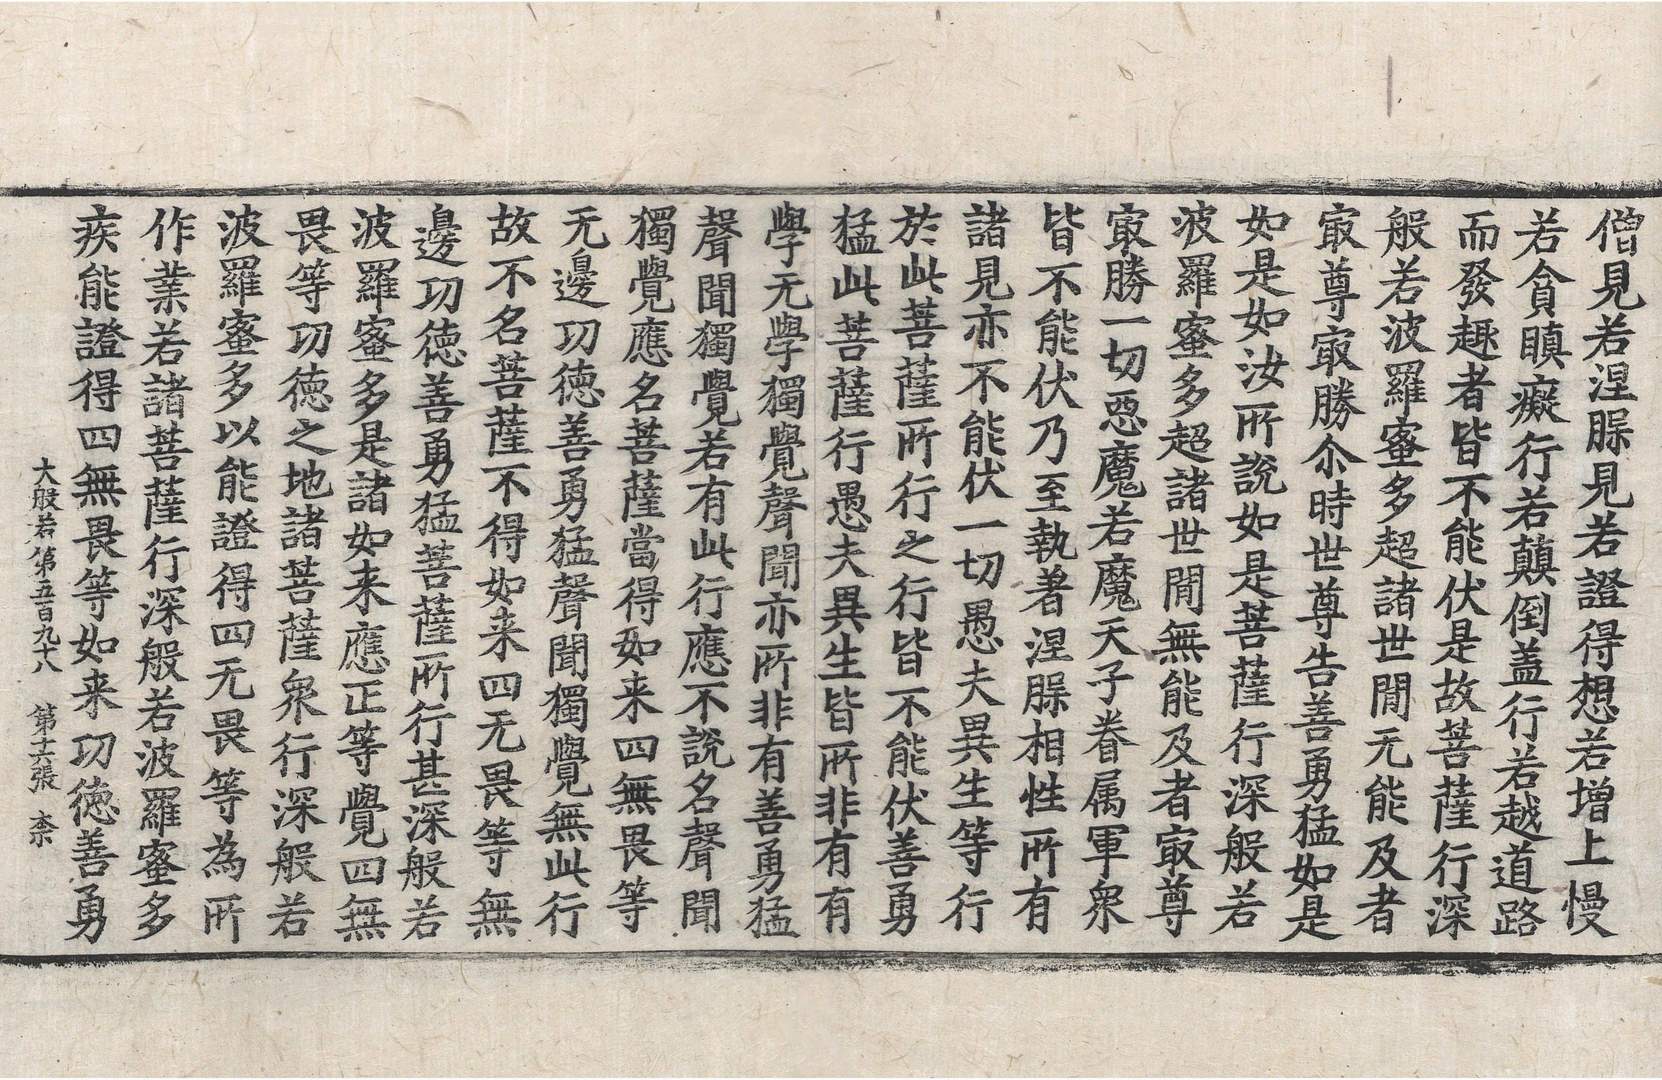 僧見若涅槃見若證得想若增上慢
若貪瞋癡行若顛倒蓋行若越道路
而發趣者皆不能伏是故菩薩行深
般若波羅蜜多超諸世間无能及者
冣尊冣勝尒時世尊告善勇猛如是
如是如汝所說如是菩薩行深般若
波羅蜜多超諸世間無能及者冣尊
冣勝一切惡魔若魔天子眷属軍衆
皆不能伏乃至執著涅槃相性所有
諸見亦不能伏一切愚夫異生等行
於此菩薩所行之行皆不能伏善勇
猛此菩薩行愚夫異生皆所非有有
學无學獨覺聲聞亦所非有善勇猛
聲聞獨覺若有此行應不說名聲聞
獨覺應名菩薩當得如来四無畏等
无邊功德善勇猛聲聞獨覺無此行
故不名菩薩不得如来四无畏等無
邊功德善勇猛菩薩所行甚深般若
波羅蜜多是諸如来應正等覺四無
畏等功德之地諸菩薩衆行深般若
波羅蜜多以能證得四无畏等為所
作業若諸菩薩行深般若波羅蜜多
疾能證得四無畏等如来功德善勇
大般若第五百九十八 第十六張 柰